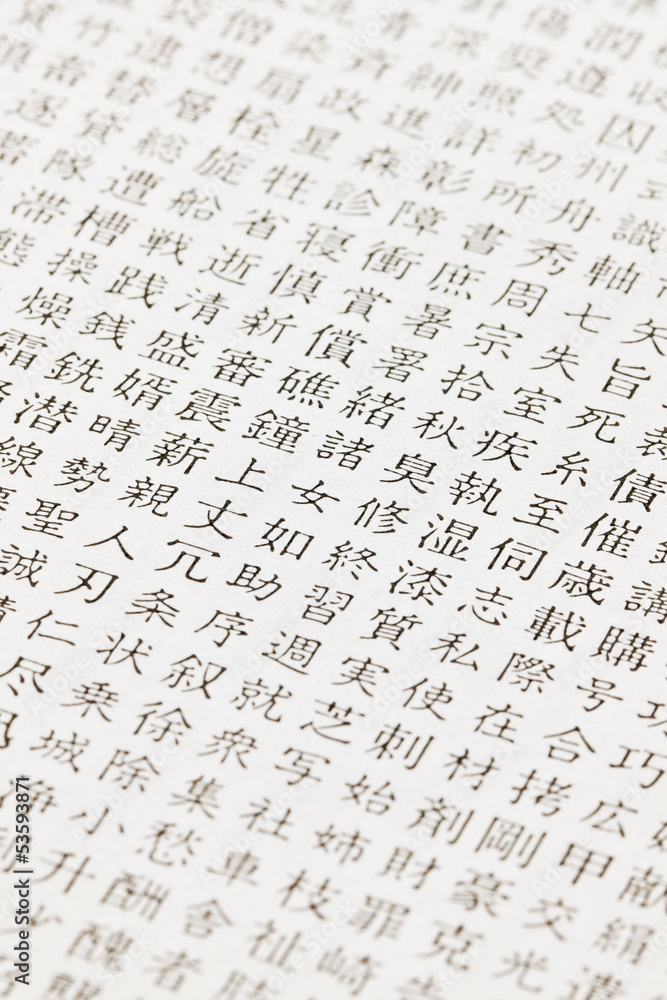 献絹遣
功巧広甲交光
講購号合拷剛豪克告
債催歳載際在材剤財罪崎
矢旨死糸至伺志私使刺始姉枝祉
式識軸七失室疾執湿漆質実芝写社車舎者
収囚州舟秀周宗拾秋臭修終習週就衆集愁酬醜
潤遵処初所書庶暑署緒諸女如助序叙徐除小升少
傷奨照詳彰障衝賞償礁鐘上丈冗条状乗城
深紳進森診寝慎新審震薪親人刃仁尽
斉政星牲省逝清盛婿晴勢聖誠請
染扇栓旋船戦践銭銑潜線
僧想層総遭槽操燥霜
袋逮替貸隊滞態
竹畜逐
Adobe Stock | #53593871